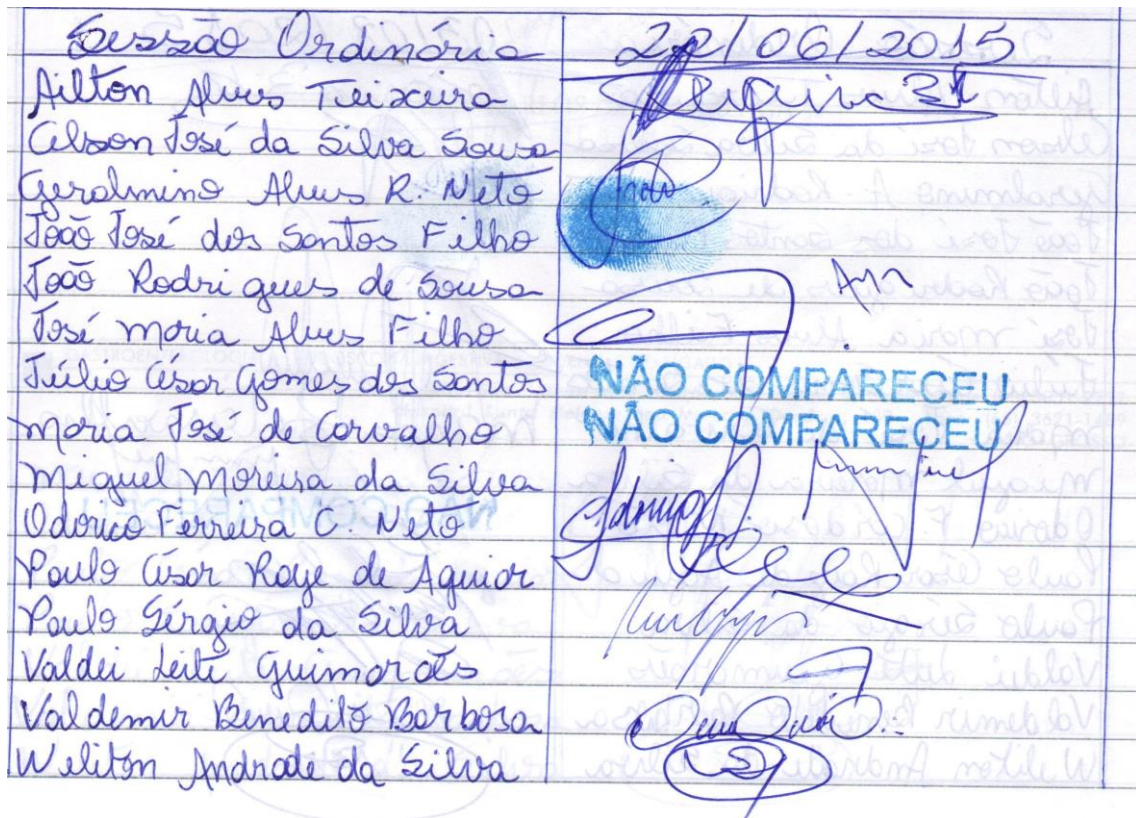 Sessão Ordinária 22/06/2015
Ailton Alves Teixeira
Celson José da Silva Sousa
Geralmino Alves R. Neto
João José dos Santos Filho
João Rodrigues de Sousa
José Maria Alves Filho
Júlio César Gomes dos Santos NÃO COMPARECEU
Maria José de Carvalho NÃO COMPARECEU
Miguel Moreira da Silva
Odorico Ferreira C. Neto
Paulo César Roge de Aguiar
Paulo Sérgio da Silva
Valdei Leite Guimarães
Valdemir Benedito Barbosa
Weliton Andrade da Silva